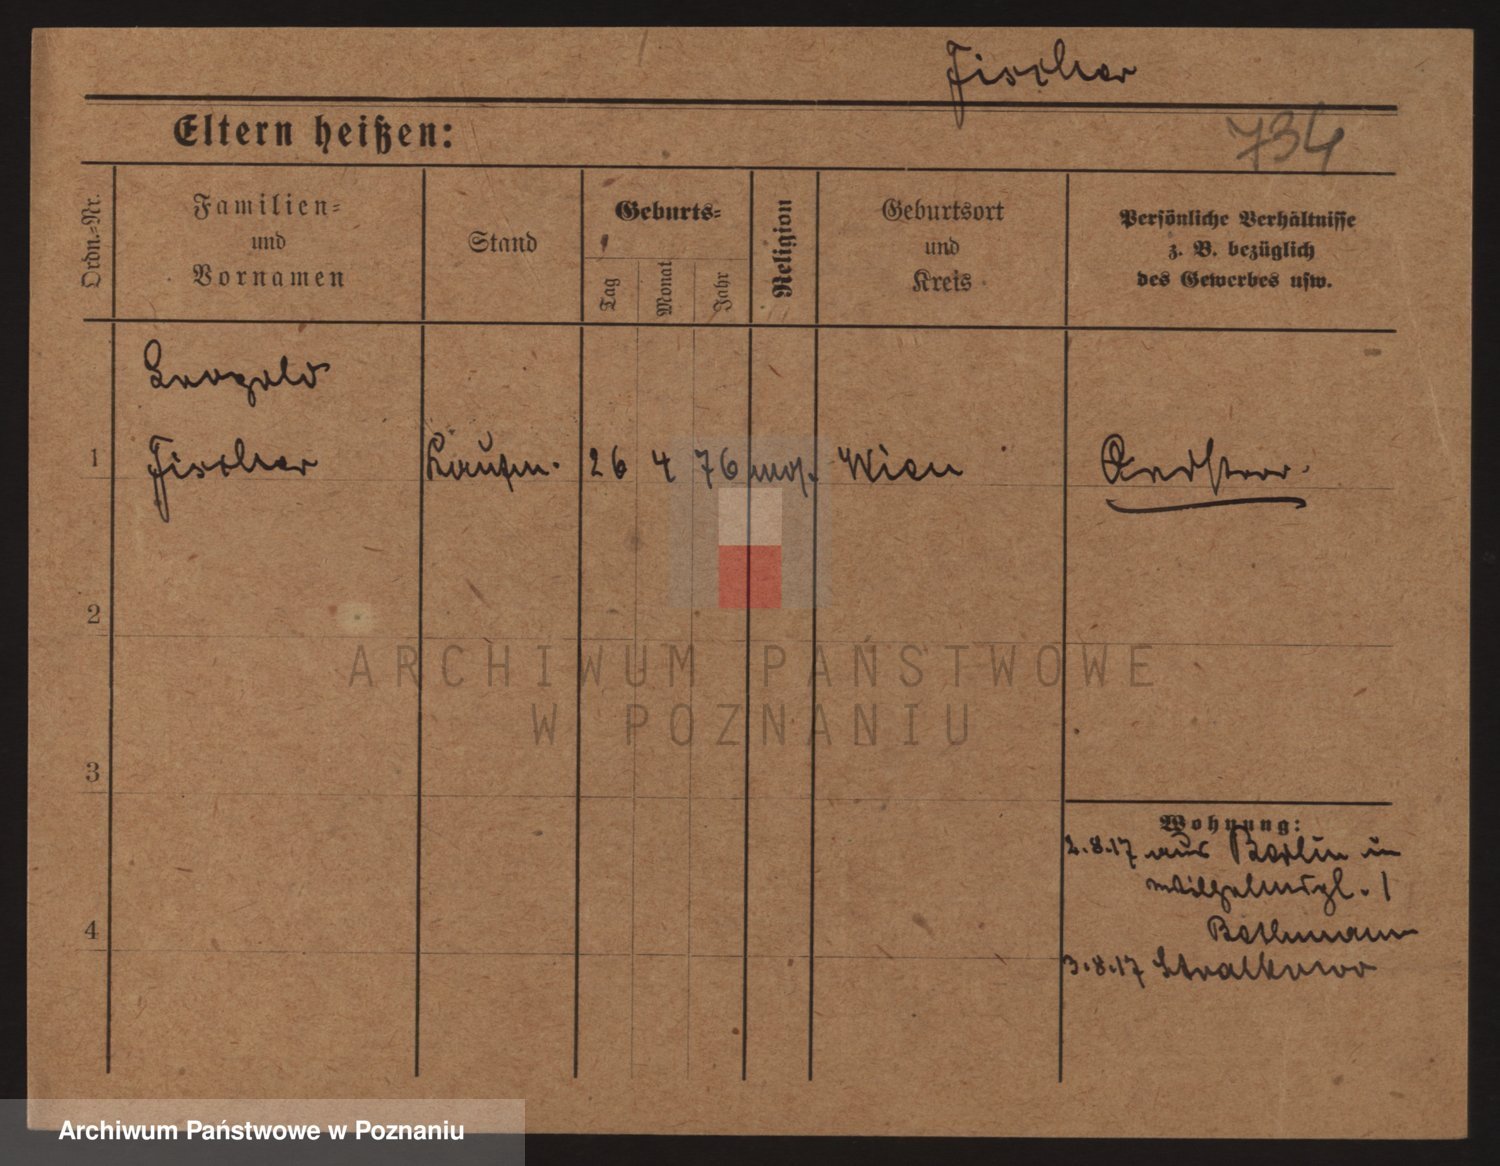 Fischer
Eltern heißen:
734
Ordn.-Nr.
Familien-
und
Vornamen
Stand
Geburts-
Tag
Monat
Jahr
Religion
Geburtsort
und
Kreis
Persönliche Verhältnisse
z. B. bezüglich
des Gewerbes usw.
Leopold
1 Fischer Kaufm. 26 4 76 mos. Wien
2
3
4
Wohnung:
2.8.17 aus Berlin in
Wilhelmspl. 1
Bothmann
3.8.17 Stralkowo
ARCHIWUM PAŃSTWOWE
W POZNANIU
Archiwum Państwowe w Poznaniu